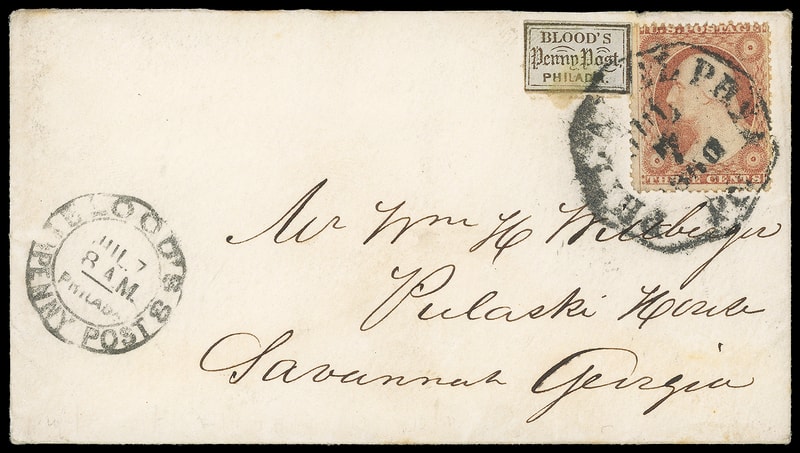 BLOOD'S
Penny Post,
PHILADA.
U.S. POSTAGE
THREE CENTS
PHILADELPHIA PA
JUL
7
1860
BLOOD'S
JUL 7
8 A.M.
PHILADA
PENNY POST
Mr Wm H Wiltberger
Pulaski House
Savannah Georgia